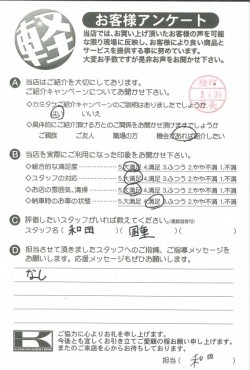 軽
お客様アンケート
当店では、お買い上げ頂いたお客様の声を可能
な限り現場に反映し、お客様により良い商品と
サービスを提供する事に努めています。
大変お手数ですが是非お声をお聞かせ下さい。
A 当店はご紹介を大切にしております。
ご紹介キャンペーンについてお聞かせ下さい。
◇カミタケご紹介キャンペーンのご説明はありましたでしょうか
はい いいえ
◇具体的にご紹介頂ける方とのご関係をお聞かせ頂けますでしょうか
ご親族 ご友人 職場の方 機会があれば紹介したい
B 当店を実際にご利用になった印象をお聞かせ下さい。
◇総合的な満足度 5.大満足 4.満足 3.ふつう 2.やや不満 1.不満
◇スタッフの対応 5.大満足 4.満足 3.ふつう 2.やや不満 1.不満
◇お店の雰囲気、清掃 5.大満足 4.満足 3.ふつう 2.やや不満 1.不満
◇納車時のお車の状態 5.大満足 4.満足 3.ふつう 2.やや不満 1.不満
C 評価したいスタッフがいれば教えてください。(複数回答可)
スタッフ名( 和田 )( )
D 担当させて頂きましたスタッフへのご指摘、ご指導メッセージを
お願いします。応援メッセージもぜひお願い致します。
なし
K
ご協力に心よりお礼を申し上げます。
今後とも宜しくお引き立てご愛顧の程お願い申し上げます。
またのご来店を心からお待ちしております。
担当( 和田 )